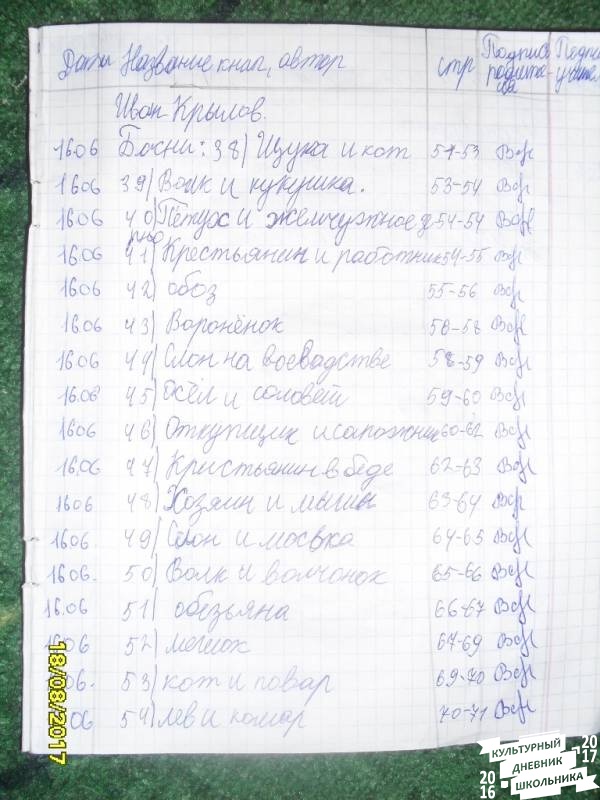 Дата Название книг, автор стр Подпись родителя Подпись
Иван Крылов.
16.06 Басни: 38) Щука и кот 51-53
16.06 39) Волк и кукушка. 53-54
16.06 40) Петух и жемчужное з 54-54
рно
16.06 41) Крестьянин и работник 54-55
16.06 42) обоз 55-56
16.06 43) Воронёнок 56-58
16.06 44) Слон на воевадстве 58-59
16.06 45) Осёл и соловей 59-60
16.06 46) Откупщик и сапожник 60-62
16.06 47) Кристьянин в беде 62-63
16.06 48) Хозяин и мыши 63-64
16.06 49) Слон и мосвка 64-65
16.06. 50) Волк и волчонок 65-66
16.06 51) обезьяна 66-67
16.06 52) мешок 67-69
06. 53) кот и повар 69-70
06 54) лев и комар 70-71
18/08/2017
КУЛЬТУРНЫЙ
ДНЕВНИК
ШКОЛЬНИКА
2016
2017